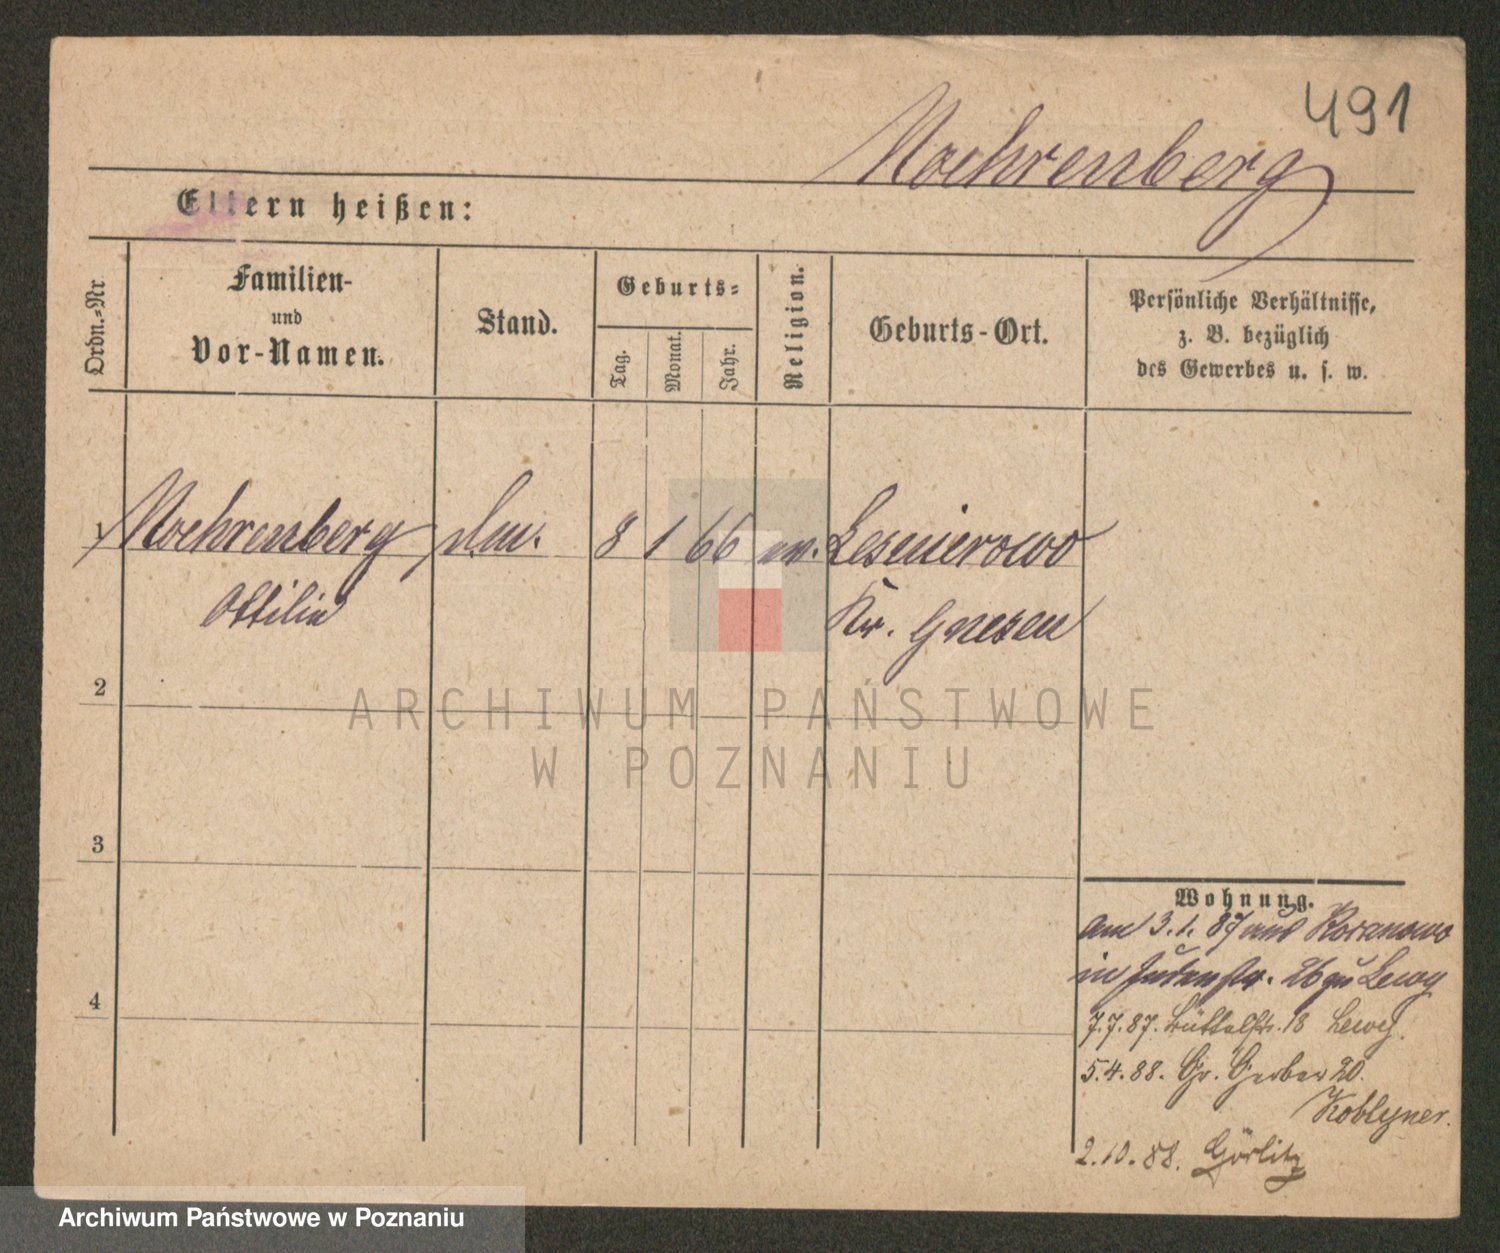 491
Moehrenberg
Eltern heißen:
Ordn.-Nr
Familien-
und
Vor-Namen.
Stand.
Geburts-
Tag.
Monat.
Jahr.
Religion.
Geburts-Ort.
Persönliche Verhältnisse,
z. B. bezüglich
des Gewerbes u. s. w.
1 Moehrenberg 8 1 66 Lesnierowo
Ottilie Kr. Gnesen
2
3
4
Wohnung.
am 3.1.87 aus
in Judenstr. 26 zu Lewy
7.7.87. Büttelstr. 18 Lewy.
5.4.88. Gr. Gerber 20.
Koblyner.
2.10.88. Görlitz
ARCHIWUM PAŃSTWOWE
W POZNANIU
Archiwum Państwowe w Poznaniu